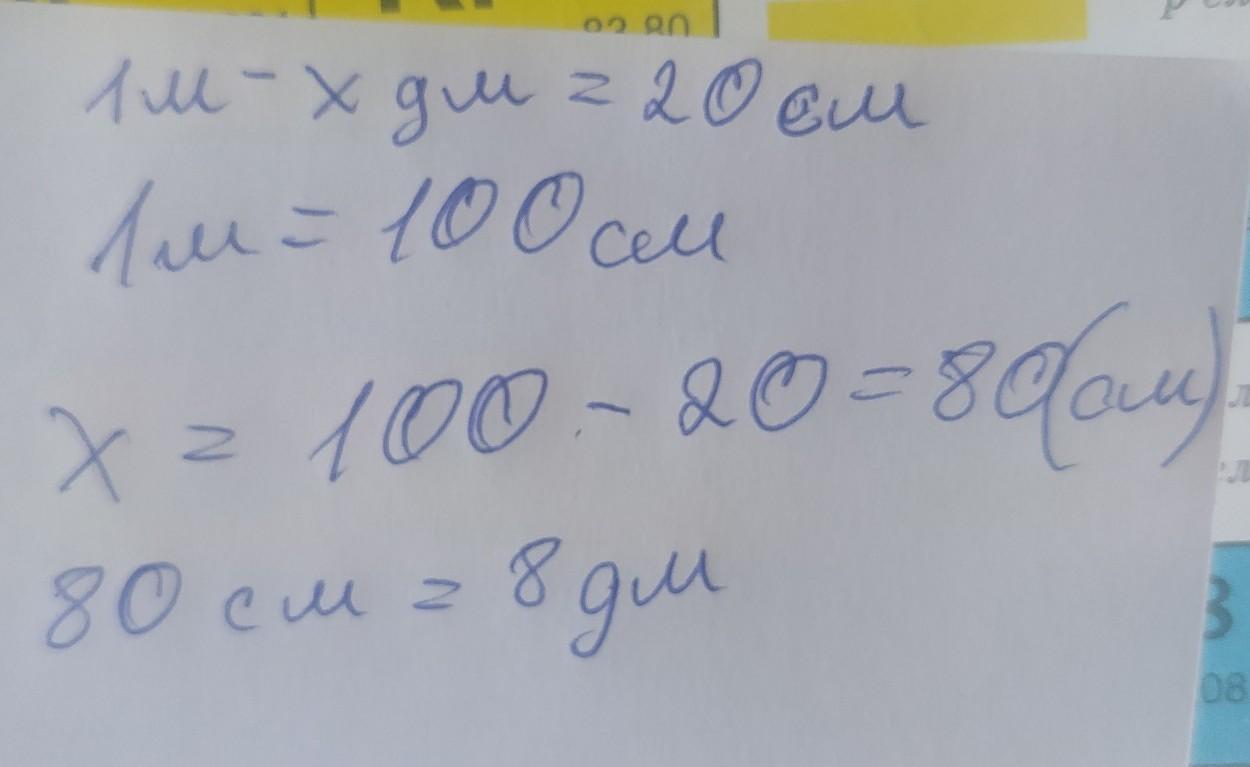 1м - х дм = 20 см
1м = 100 см
х = 100 - 20 = 80(см)
80 см = 8 дм
08